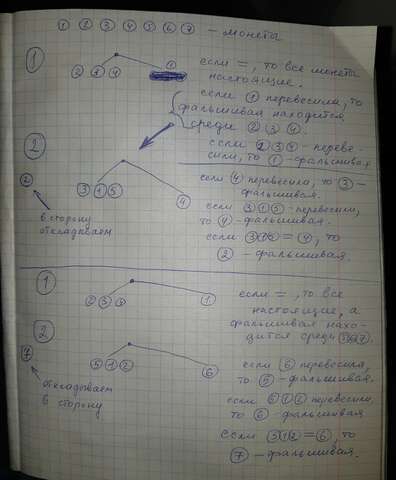 ① ② ③ ④ ⑤ ⑥ ⑦ – монета
①
② ③ ④ ①
если =, то все монеты
настоящие.
если ① перевесила, то
фальшивая находится
среди ② ③ ④.
если ② ③ ④ - переве-
сили, то ① - фальшивая
②
②
③ ① ⑤ ④
в сторону
откладываем
если ④ перевесила, то ③ –
фальшивая.
если ③ ① ⑤ - перевесили,
то ④ - фальшивая.
если ③ ① ⑤ = ④, то
② - фальшивая.
①
② ③ ④ ①
если =, то все
настоящие, а
фальшивая нахо-
дится среди ⑤ ⑥ ⑦.
②
⑦
⑤ ① ② ⑥
откладываем
в сторону
если ⑥ перевесила,
то ⑤ - фальшивая.
если ⑤ ① ② перевесили,
то ⑥ - фальшивая
если ⑤ ① ② = ⑥, то
⑦ – фальшивая.